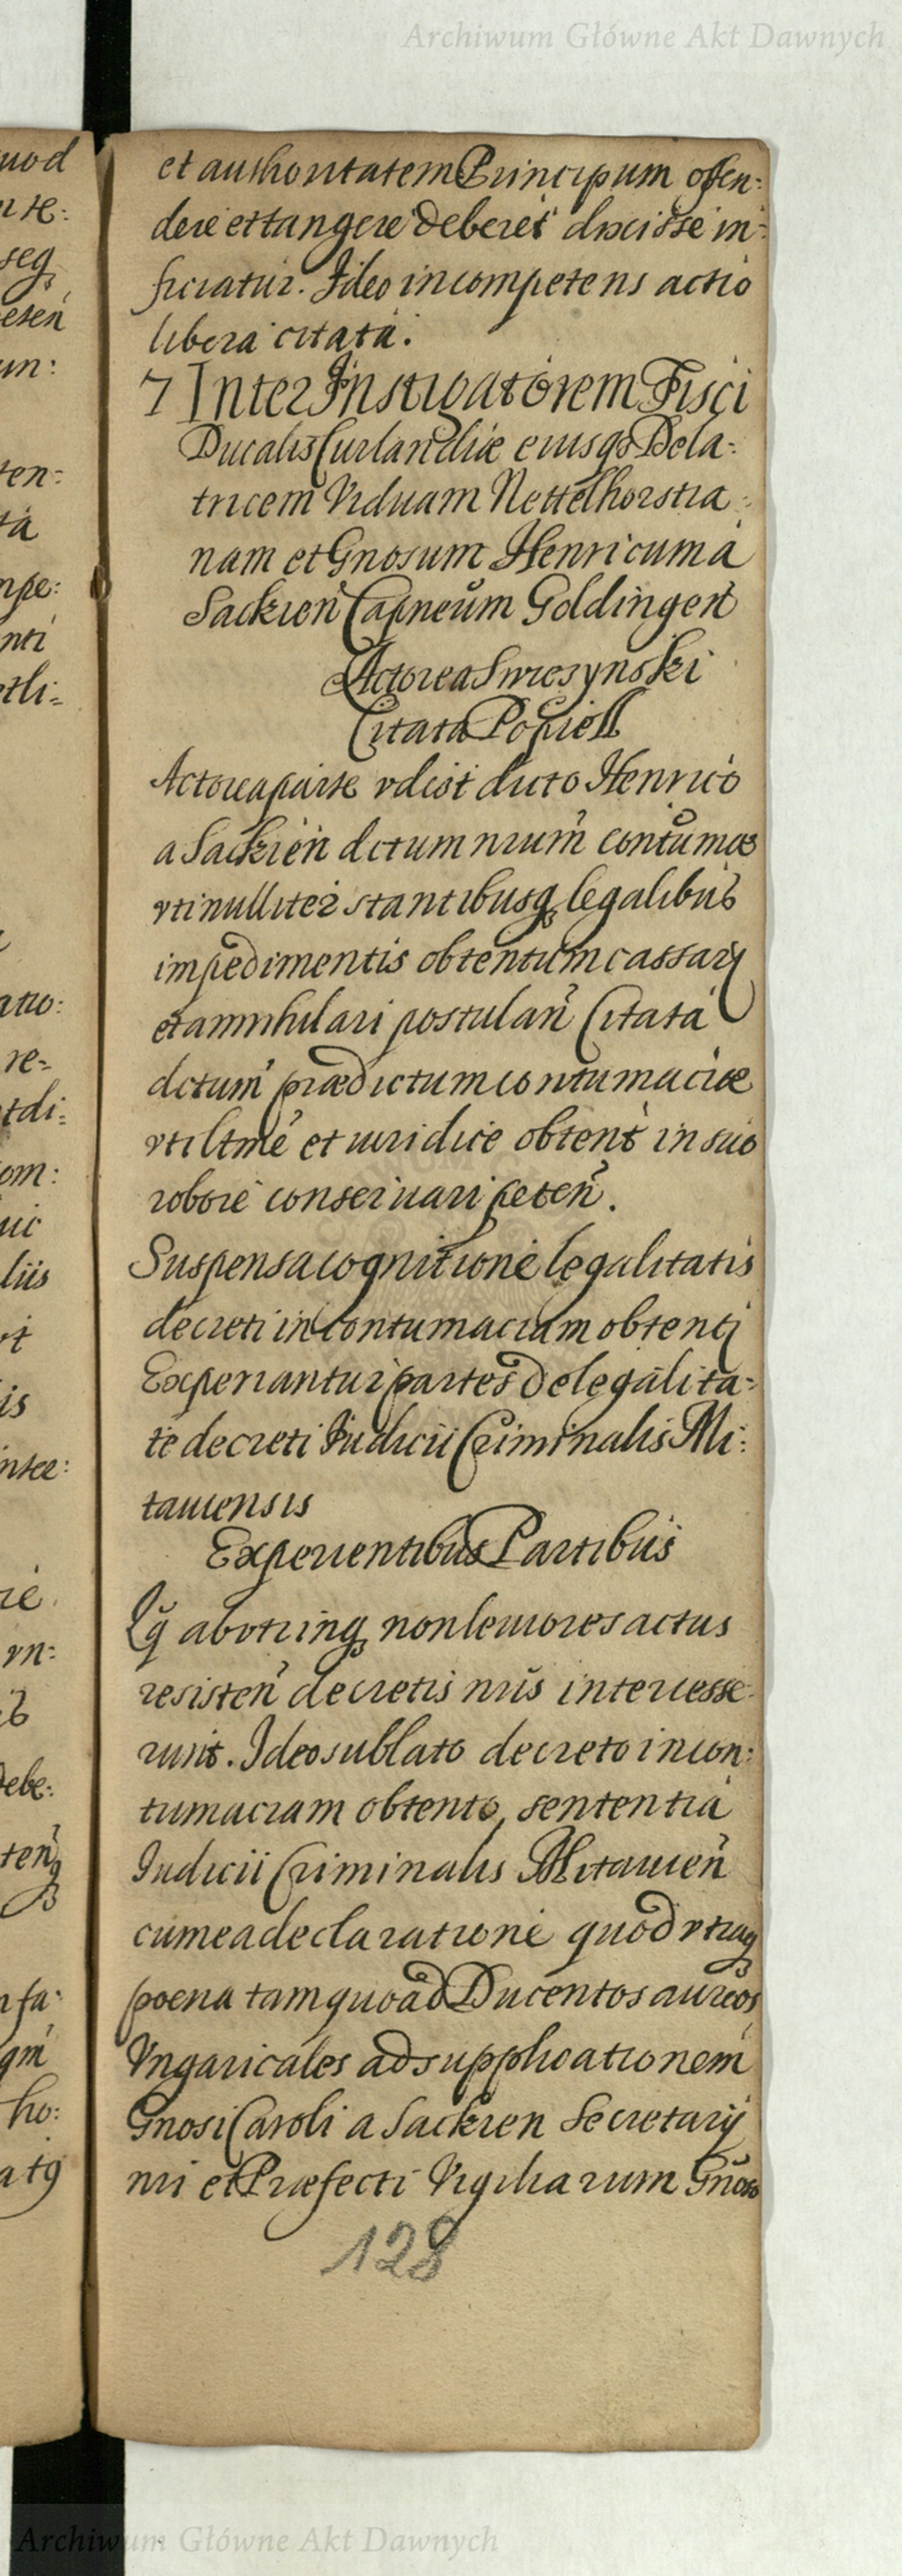 Archiwum Główne Akt Dawnych
et authoritatem Principum offen:
dere et tangere deberet dixisse in:
ficiatur. Ideo incompetens actio
libera citata.
7 Inter Instigatorem Fisci
Ducalis Curlandiæ eiusq3 Dela:
tricem Viduam Nettelhorstia:
nam et Gnosum Henricum a
Sackien Capneum Goldingen
Actorea Swiesynski
Citata Popiell
Actorea parte dicto Henrico
a Sackien dctum nrum contumae
vti nulliter stantibusq3 legalibus
impedimentis obtentum cassary
et annihilari postulan Citata
dctum prædictum contumaciæ
vti ltme et iuridice obtent in suo
robore conseruari peten.
Suspensa cognitione legalitatis
decreti in contumaciam obtenti
Experiantur partes de legalita:
te decreti Iudicii Criminalis Mi:
tauiensis
Experientibus Partibus
Qq abvtrinq3 non leuiores actus
resisten decretis nris intercesse
runt. Ideo sublato decreto in con:
tumaciam obtento, sententia
Iudicii Criminalis Mitauien
cum ea declaratione quod vtraq3
poena tam quoad Ducentos aureos
Vngaricales ad supplicationem
Gnosi Caroli a Sackien Secretarij
nri et Præfecti Vigiliarum Gnoso
128
uod
seq3
eten
un:
ten:
ta
mpe:
nti
etli:
atio:
re:
tdi:
om:
uic
liis
is
vn:
debe:
n fa:
qm
ho:
Archiwum Główne Akt Dawnych